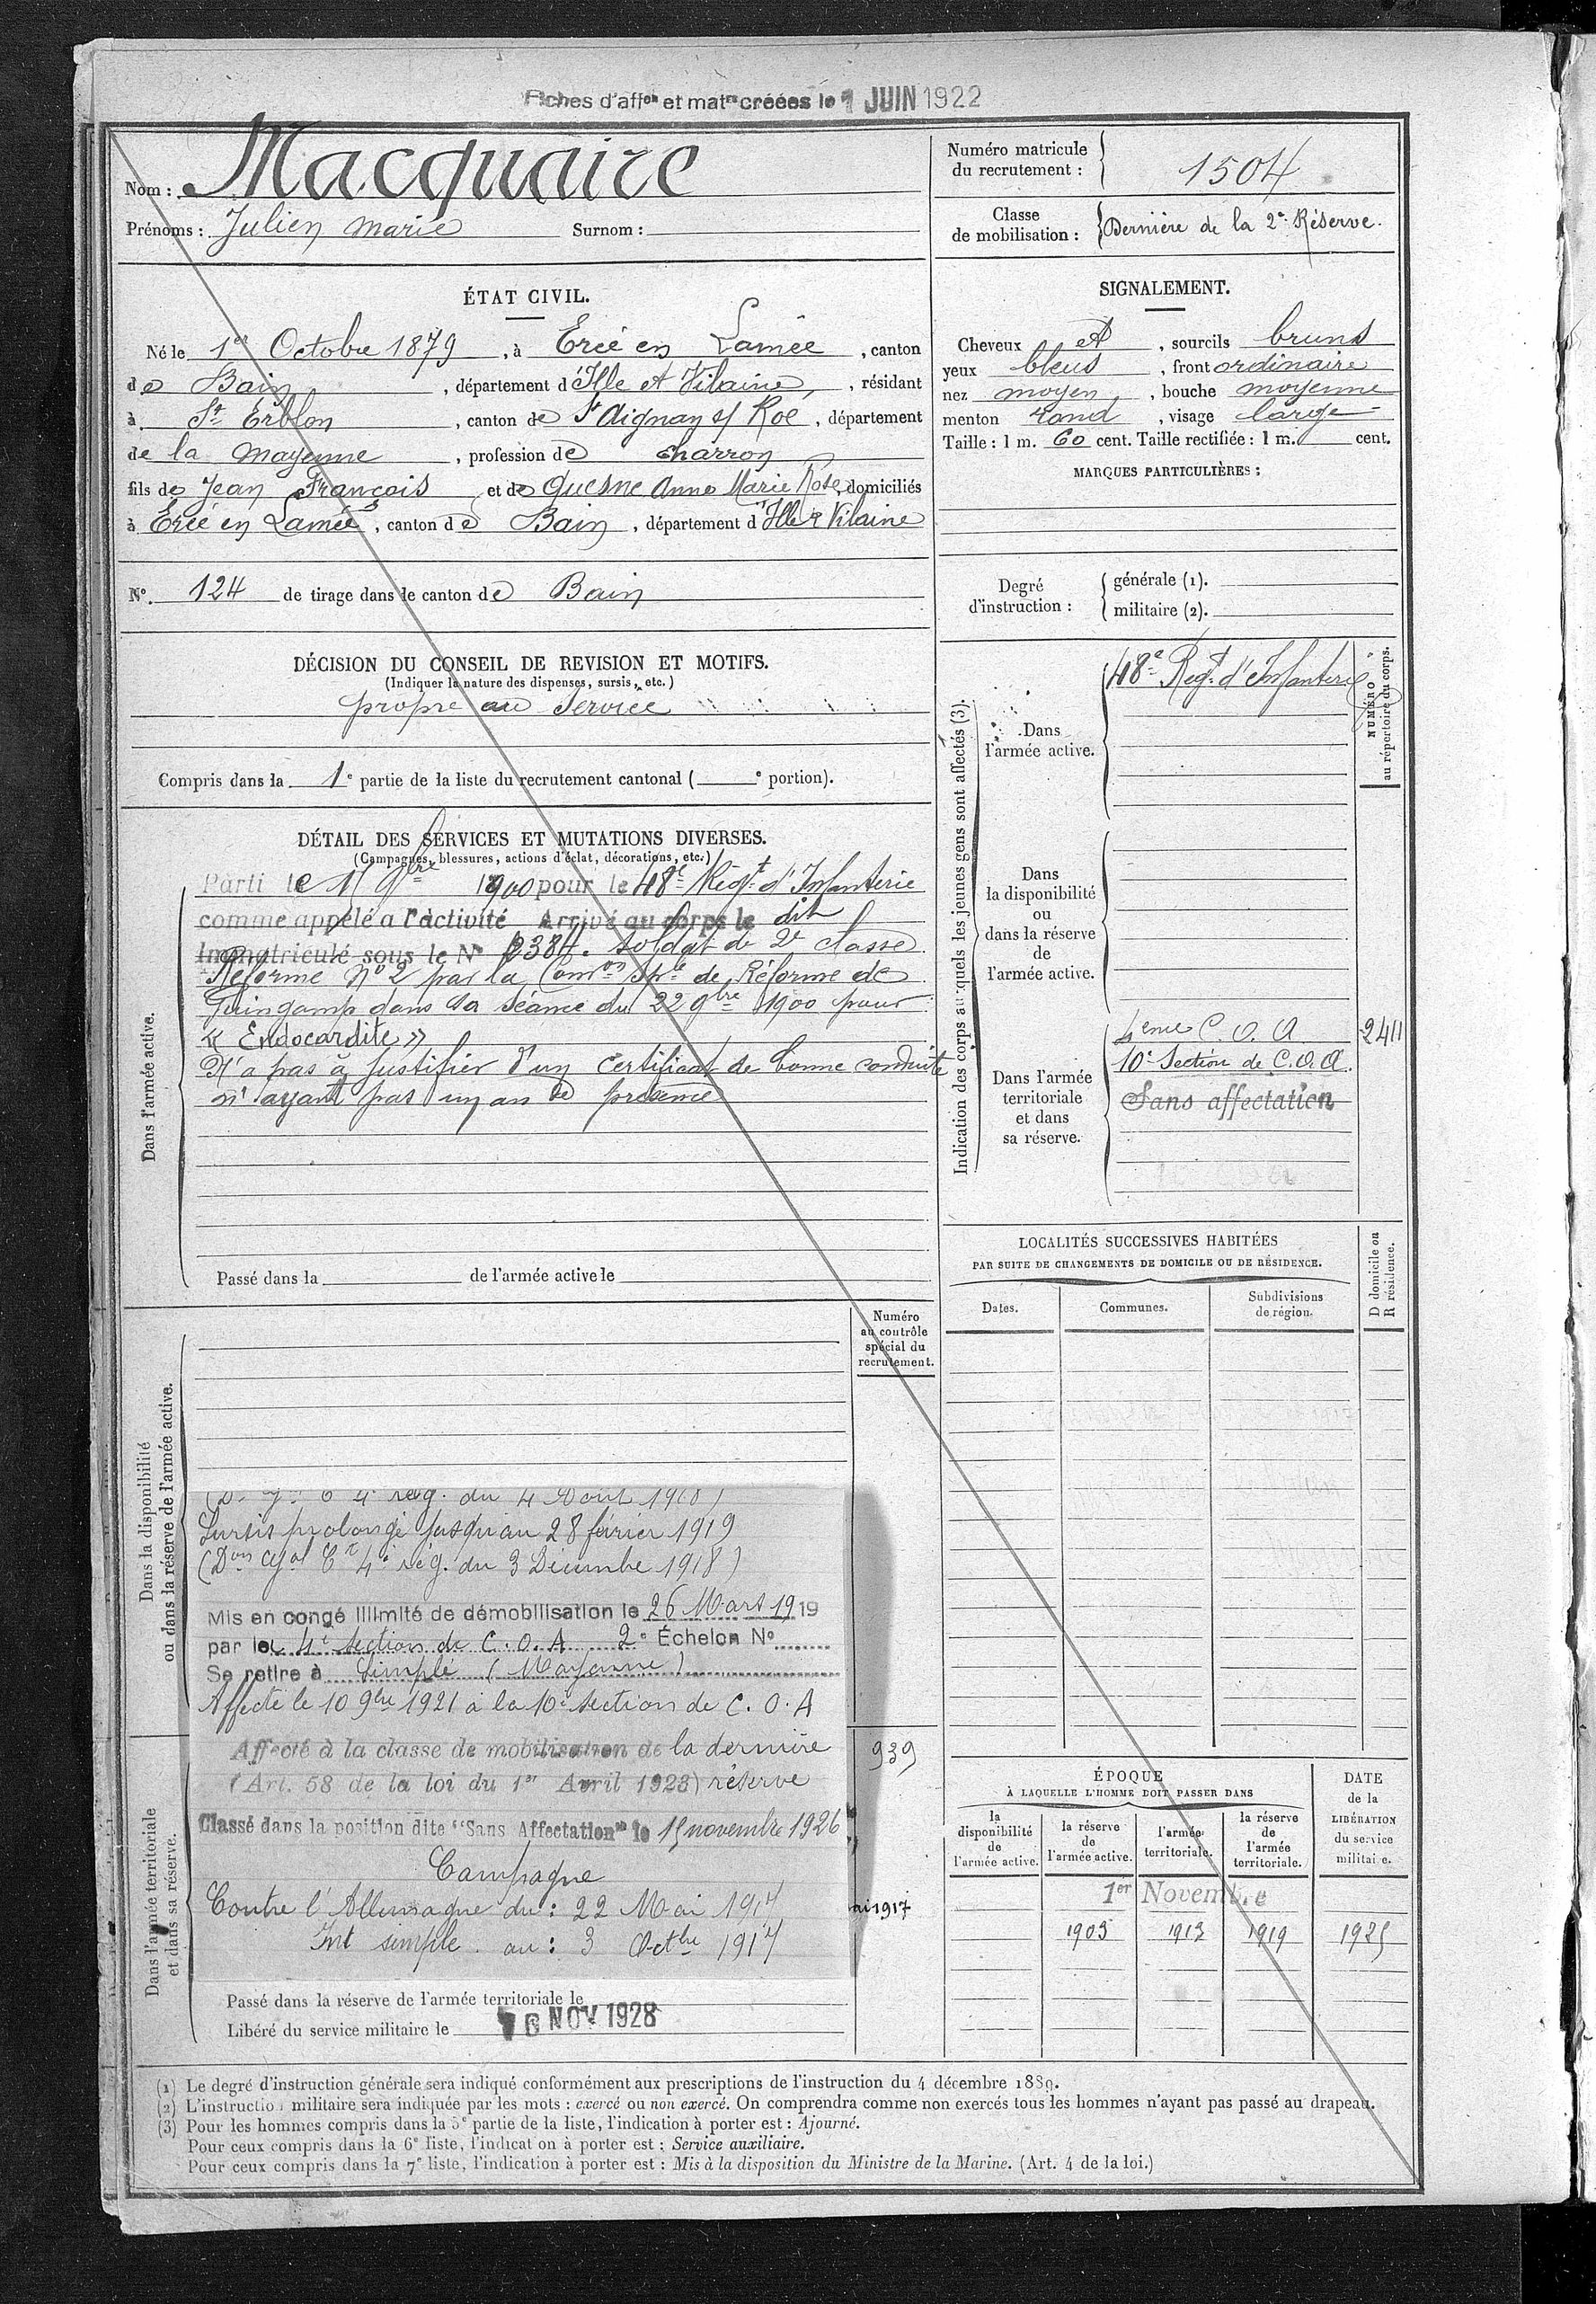 Fiches d'affon et matre créées le 1 JUIN 1922
Nom : Macquaire
Prénoms : Julien Marie Surnom :
Numéro matricule du recrutement : 1504
Classe de mobilisation : Dernière de la 2e Réserve.
ÉTAT CIVIL.
Né le 1er Octobre 1879, à Ercé en Lamée, canton
de Bain, département d'Ille et Vilaine, résidant
à St Erblon, canton de St Aignan s/ Roë, département
de la Mayenne, profession de charron
fils de Jean François et de Quesne Anne Marie Rose, domiciliés
à Ercé en Lamée, canton de Bain, département d'Ille et Vilaine
N°. 124 de tirage dans le canton de Bain
SIGNALEMENT.
Cheveux et, sourcils bruns
yeux bleus, front ordinaire
nez moyen, bouche moyenne
menton rond, visage large
Taille : 1 m. 60 cent. Taille rectifiée : 1 m. cent.
MARQUES PARTICULIÈRES :
Degré d'instruction :
générale (1).
militaire (2).
DÉCISION DU CONSEIL DE REVISION ET MOTIFS.
(Indiquer la nature des dispenses, sursis, etc.)
propre au service
Compris dans la 1e partie de la liste du recrutement cantonal ( e portion).
DÉTAIL DES SERVICES ET MUTATIONS DIVERSES.
(Campagnes, blessures, actions d'éclat, décorations, etc.)
Dans l'armée active.
Parti le 9bre 1900 pour le 48e Régt d'Infanterie
comme appelé à l'activité Arrivé au corps le dit
Immatriculé sous le N° soldat de 2e classe
Réformé N° 2 par la Comon Sple de Réforme de
Guingamp dans sa séance du 22 9bre 1900 pour
« Endocardite »
N'a pas à justifier d'un certificat de bonne conduite
n'ayant pas un an de présence
Passé dans la de l'armée active le
Indication des corps auxquels les jeunes gens sont affectés (3).
NUMÉRO au répertoire du corps.
Dans l'armée active.
48e Régt d'Infanterie
Dans la disponibilité ou dans la réserve de l'armée active.
Dans l'armée territoriale et dans sa réserve.
4eme C. O. A. 2411
10e Section de C.O.A.
Sans affectation
LOCALITÉS SUCCESSIVES HABITÉES
PAR SUITE DE CHANGEMENTS DE DOMICILE OU DE RÉSIDENCE.
Dates. Communes. Subdivisions de région.
D domicile ou R résidence.
Numéro au contrôle spécial du recrutement.
Dans la disponibilité ou dans la réserve de l'armée active.
4e rég. du 4 Aout 1918)
Sursis prolongé jusqu'au 28 février 1919
(Don Gal Ct 4e rég. du 3 Décembre 1918)
Mis en congé illimité de démobilisation le 26 Mars 1919
par la 4e Section de C. O. A 2e Échelon N°
Se retire à Simplé (Mayenne)
Affecté le 10 9bre 1921 à la 10e Section de C. O. A
Dans l'armée territoriale et dans sa réserve.
Affecté à la classe de mobilisation de la dernière
(Art. 58 de la loi du 1er Avril 1923) réserve
939
Classé dans la position dite "Sans Affectation" le 15 novembre 1926
Campagne
Contre l'Allemagne du : 22 Mai 1917
Int simple. au : 3 Octbre 1917
ai 1917
Passé dans la réserve de l'armée territoriale le
Libéré du service militaire le NOV 1928
ÉPOQUE
À LAQUELLE L'HOMME DOIT PASSER DANS
la disponibilité de l'armée active.
la réserve de l'armée active.
l'armée territoriale.
la réserve de l'armée territoriale.
DATE de la LIBÉRATION du service militaire.
1er Novembre
1903 1913 1919 1925
(1) Le degré d'instruction générale sera indiqué conformément aux prescriptions de l'instruction du 4 décembre 1889.
(2) L'instruction militaire sera indiquée par les mots : exercé ou non exercé. On comprendra comme non exercés tous les hommes n'ayant pas passé au drapeau.
(3) Pour les hommes compris dans la 5e partie de la liste, l'indication à porter est : Ajourné.
Pour ceux compris dans la 6e liste, l'indication à porter est : Service auxiliaire.
Pour ceux compris dans la 7e liste, l'indication à porter est : Mis à la disposition du Ministre de la Marine. (Art. 4 de la loi.)